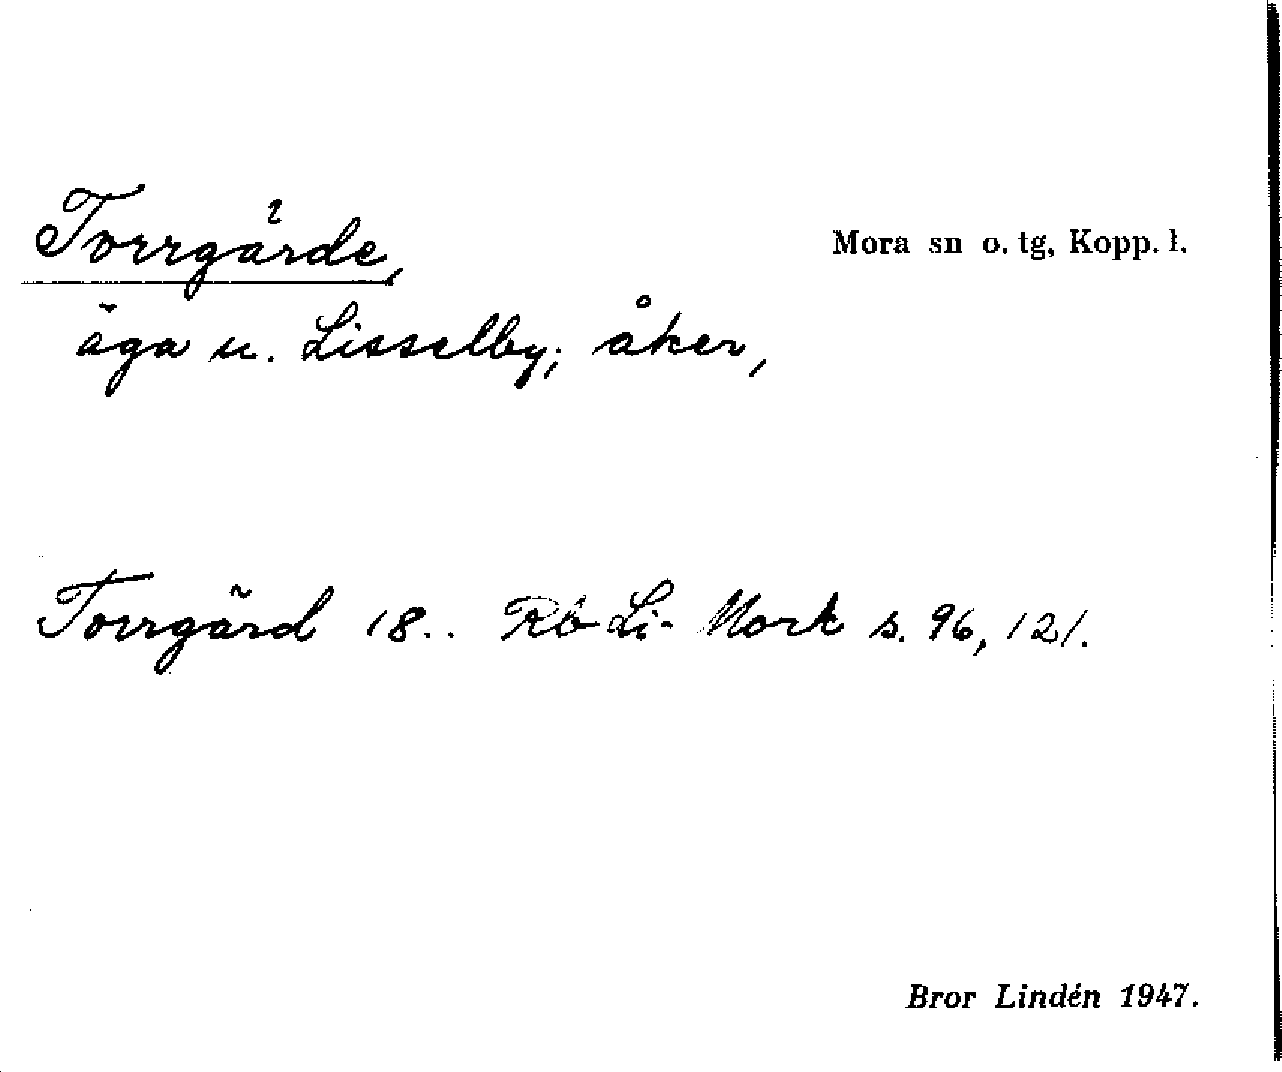 Torrgärde,
Mora sn o. tg, Kopp. l.
äga u. Lisselby; åker,
Torrgärd 18.. Rb Li- Mork s. 96, 121.
Bror Lindén 1947.